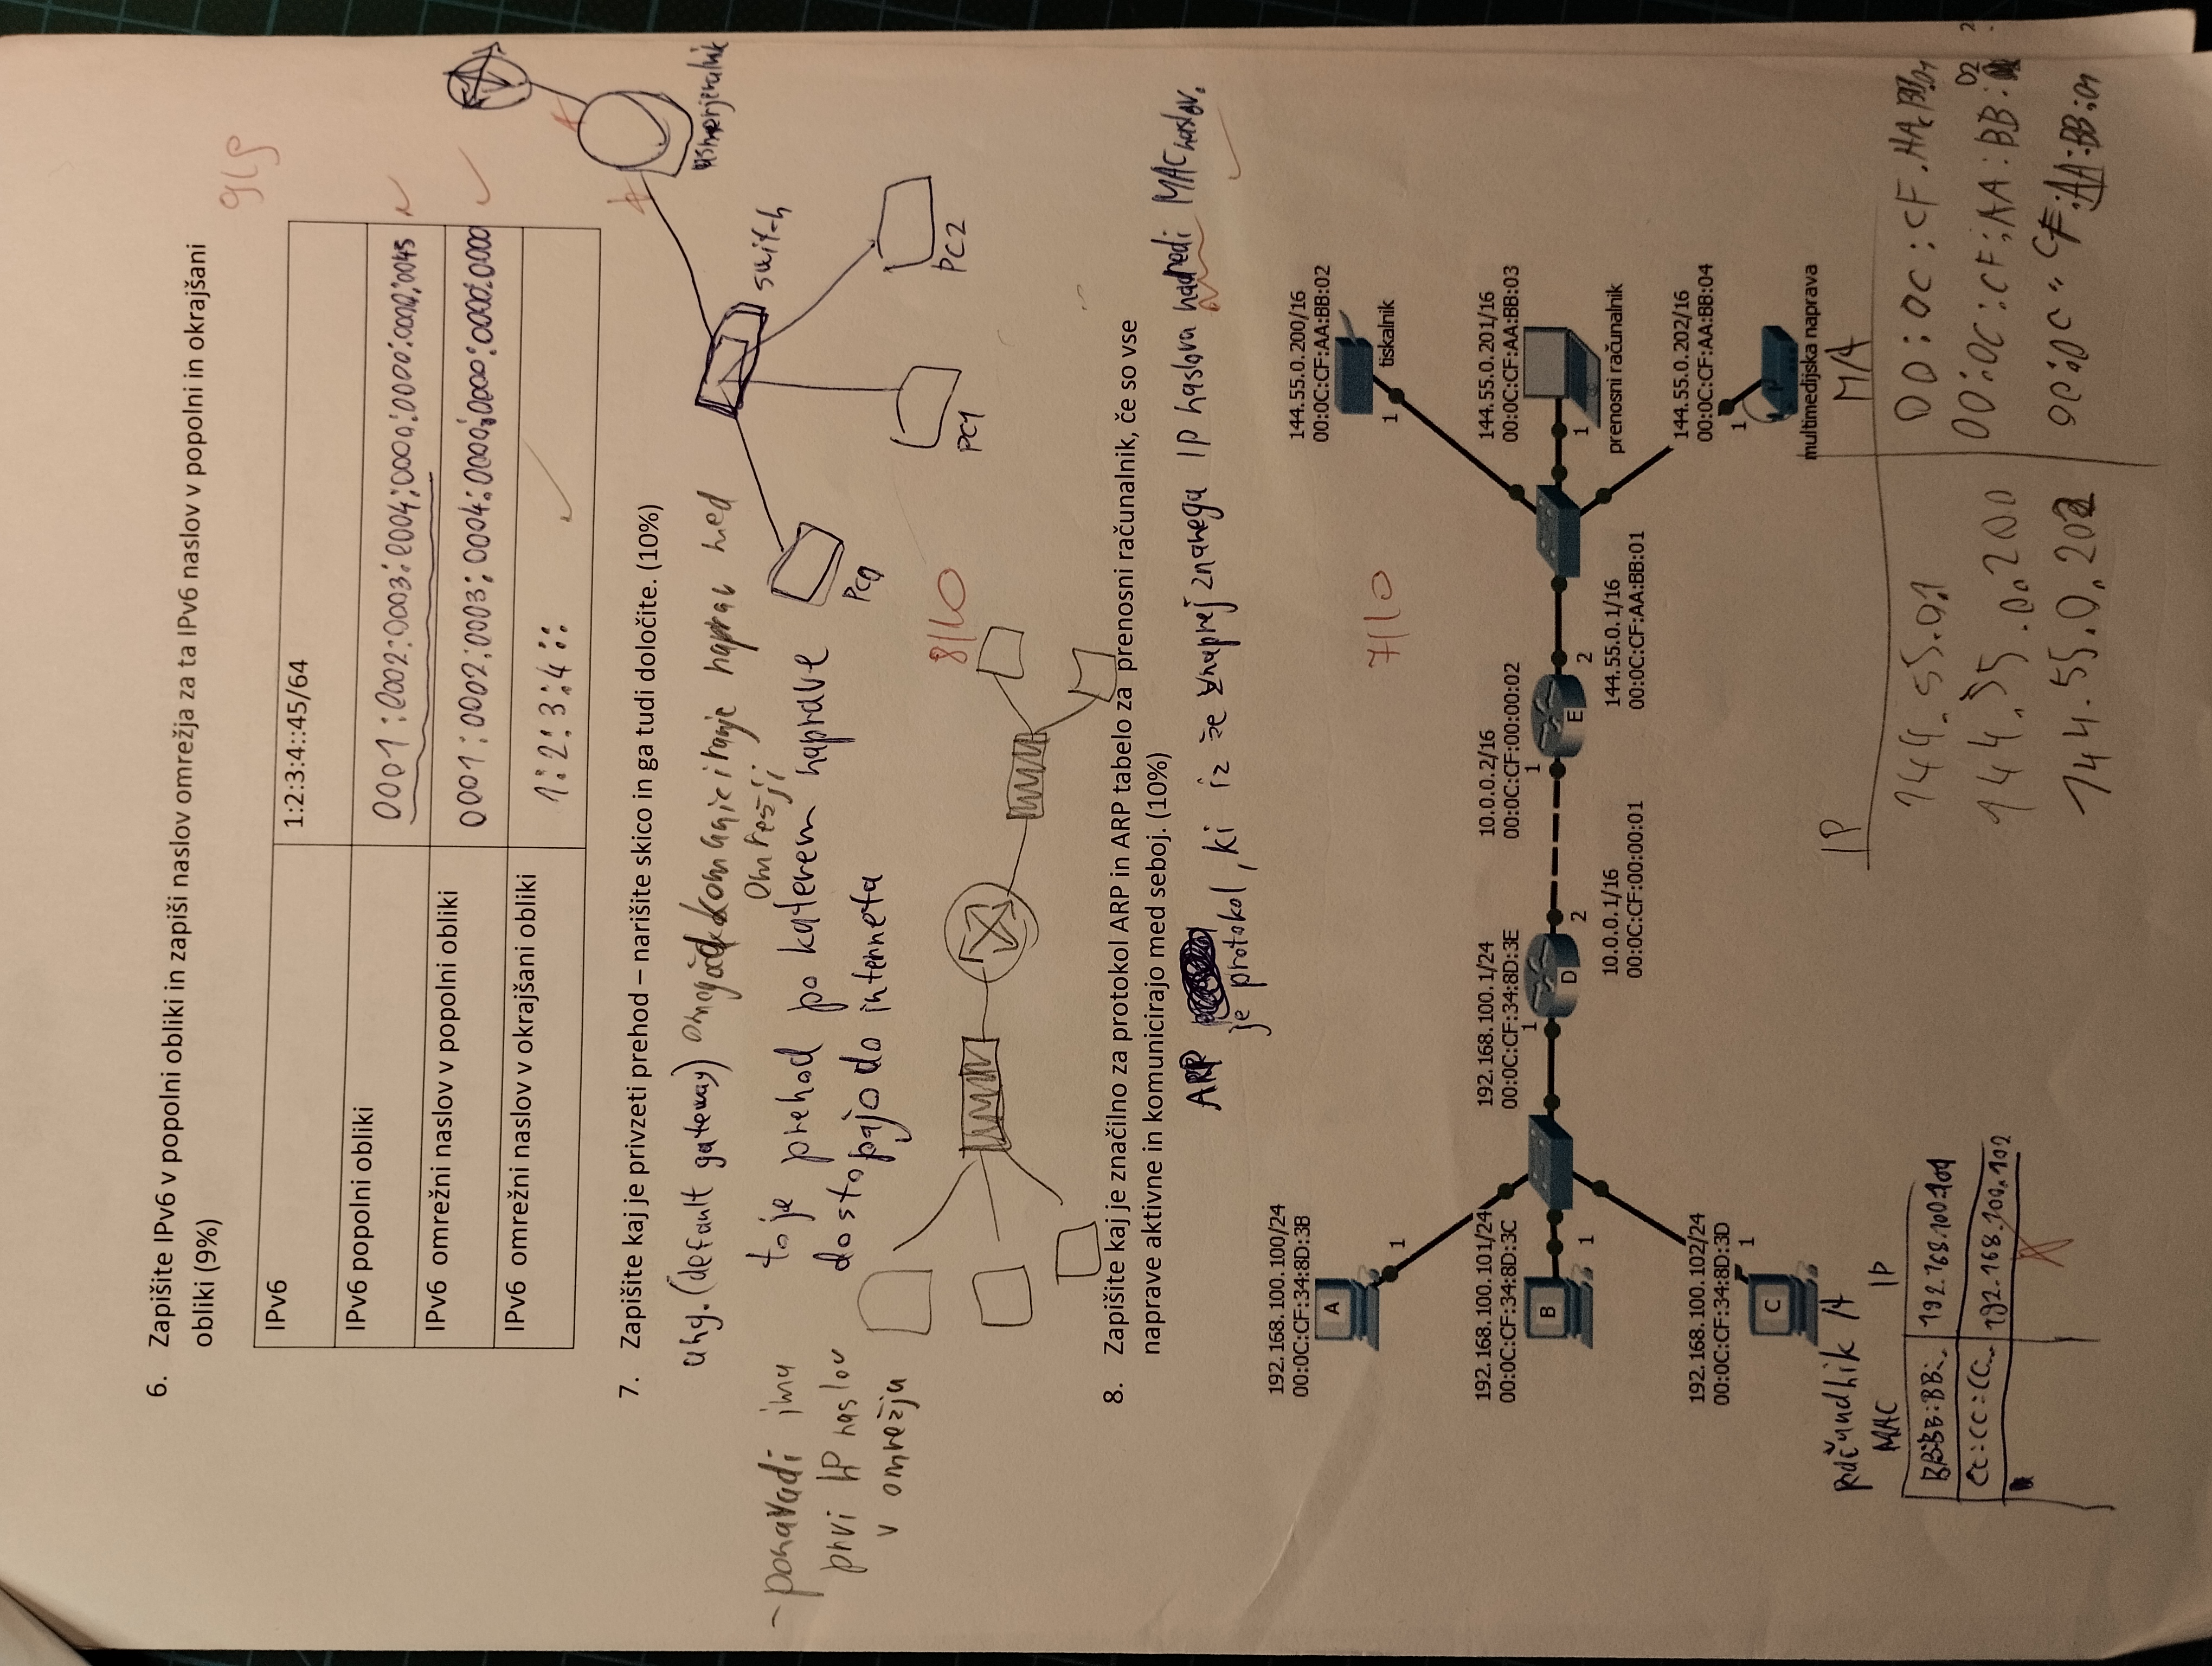 6. Zapišite IPv6 v popolni obliki in zapiši naslov omrežja za ta IPv6 naslov v popolni in okrajšani
obliki (9%)
9/9
IPv6
1:2:3:4::45/64
IPv6 popolni obliki
0001:0002:0003:0004:0000:0000:0000:0045
IPv6 omrežni naslov v popolni obliki
0001:0002:0003:0004:0000:0000:0000:0000
IPv6 omrežni naslov v okrajšani obliki
1:2:3:4::
7. Zapišite kaj je privzeti prehod – narišite skico in ga tudi določite. (10%)
ang. (default gateway) omogoča komuniciranje naprav med
omrežji
to je prehod po katerem naprave
dostopajo do interneta
- ponavadi ima
prvi IP naslov
v omrežja
usmerjevalnik
switch
PC0
PC1
PC2
8/10
8. Zapišite kaj je značilno za protokol ARP in ARP tabelo za prenosni računalnik, če so vse
naprave aktivne in komunicirajo med seboj. (10%)
ARP
je protokol, ki iz že vnaprej znanega IP naslova naredi MAC naslov.
7/10
192.168.100.100/24
00:0C:CF:34:8D:3B
A
1
144.55.0.200/16
00:0C:CF:AA:BB:02
1
tiskalnik
192.168.100.101/24
00:0C:CF:34:8D:3C
B
1
192.168.100.1/24
00:0C:CF:34:8D:3E
1
D
2
10.0.0.1/16
00:0C:CF:00:00:01
10.0.0.2/16
00:0C:CF:00:00:02
1
E
2
144.55.0.1/16
00:0C:CF:AA:BB:01
144.55.0.201/16
00:0C:CF:AA:BB:03
1
prenosni računalnik
192.168.100.102/24
00:0C:CF:34:8D:3D
1
C
144.55.0.202/16
00:0C:CF:AA:BB:04
1
multimedijska naprava
Računalnik A
MAC IP
BB:BB:BB:.. 192.168.100.101
CC:CC:CC... 192.168.100.102
IP MA
144.55.0.1 00:0C:CF:AA:BB:01
144.55.0.200 00:0C:CF:AA:BB:02
144.55.0.202 00:0C:CF:AA:BB:01